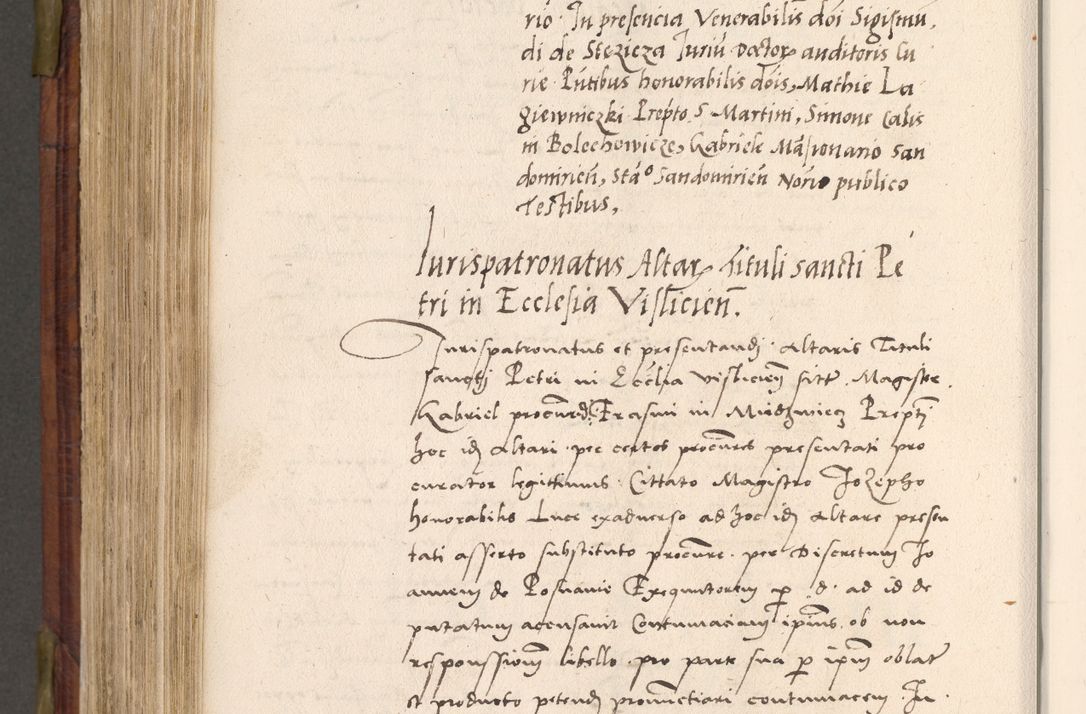 rio. In presencia Venerabilis dōi Sigismu,
di de Stezicza Iuriū Doctor auditoris Cu
rie Pñtibus honorabilis dōis, Mathie La
giewniczki Prepto S Martini, Simone Calis
in Bolechowicze, Gabriele Māsionario san
domirieñ, Sta° Sandomirieñ Norio publico
Testibus,
Iurispatronatus Altar tituli sancti Pe
tri in Ecclesia Vislicieñ.
Iurispatronatus et presentandj Altaris Tituli
sanctj Petri in Ecclia vislicieñ sitt. Magister
Gabriel procūred. Erasmi in Miedzwiecz Preptj
hoc idj Altari per certos procūres presentati pro
curator legittimus. Cittato Magistro Jozepho
honorabilis Luce exaduerso ad hoc idj Altare presen
tati asserto substituto procūre. per Discretum Jo
annem de Posnanie Exequutorem p .d. ad id de
putatum acensauit Contumaciam ipīus ob non
responssionem libello pro parte sua p ipm oblat
et producto petendj pronūctiari contumacem. In